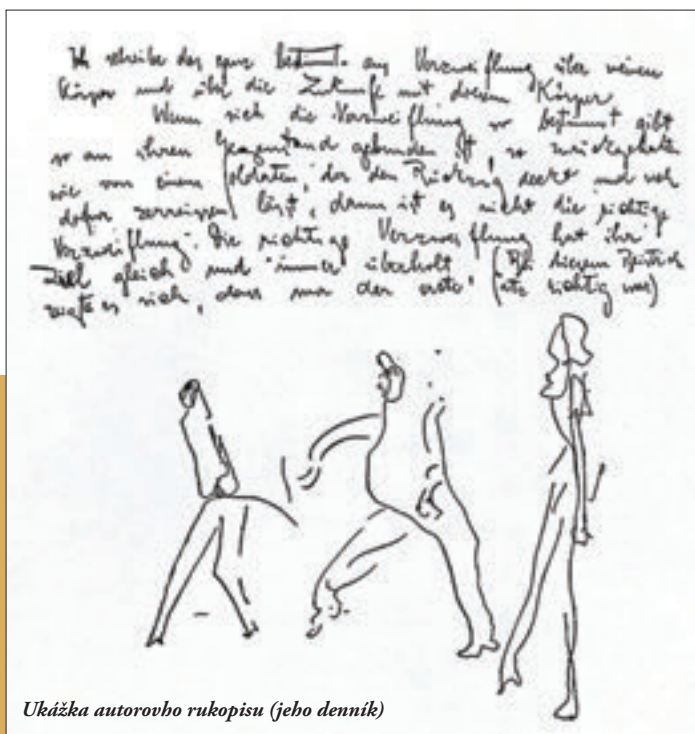 Ich schreibe das ganz bestimmt aus Verzweiflung über meinen
Körper und über die Zukunft mit diesem Körper
Wenn sich die Verzweiflung so bestimmt gibt
so an ihren Gegenstand gebunden ist, so zurückgehalten
wie von einem Soldaten, der den Rückzug deckt und sich
dafür zerreissen lässt, dann ist es nicht die richtige
Verzweiflung. Die richtige Verzweiflung hat ihr
Ziel gleich und immer überholt, (Bei diesem Beistrich
zeigte es sich, dass nur der erste richtig war)
Ukážka autorovho rukopisu (jeho denník)